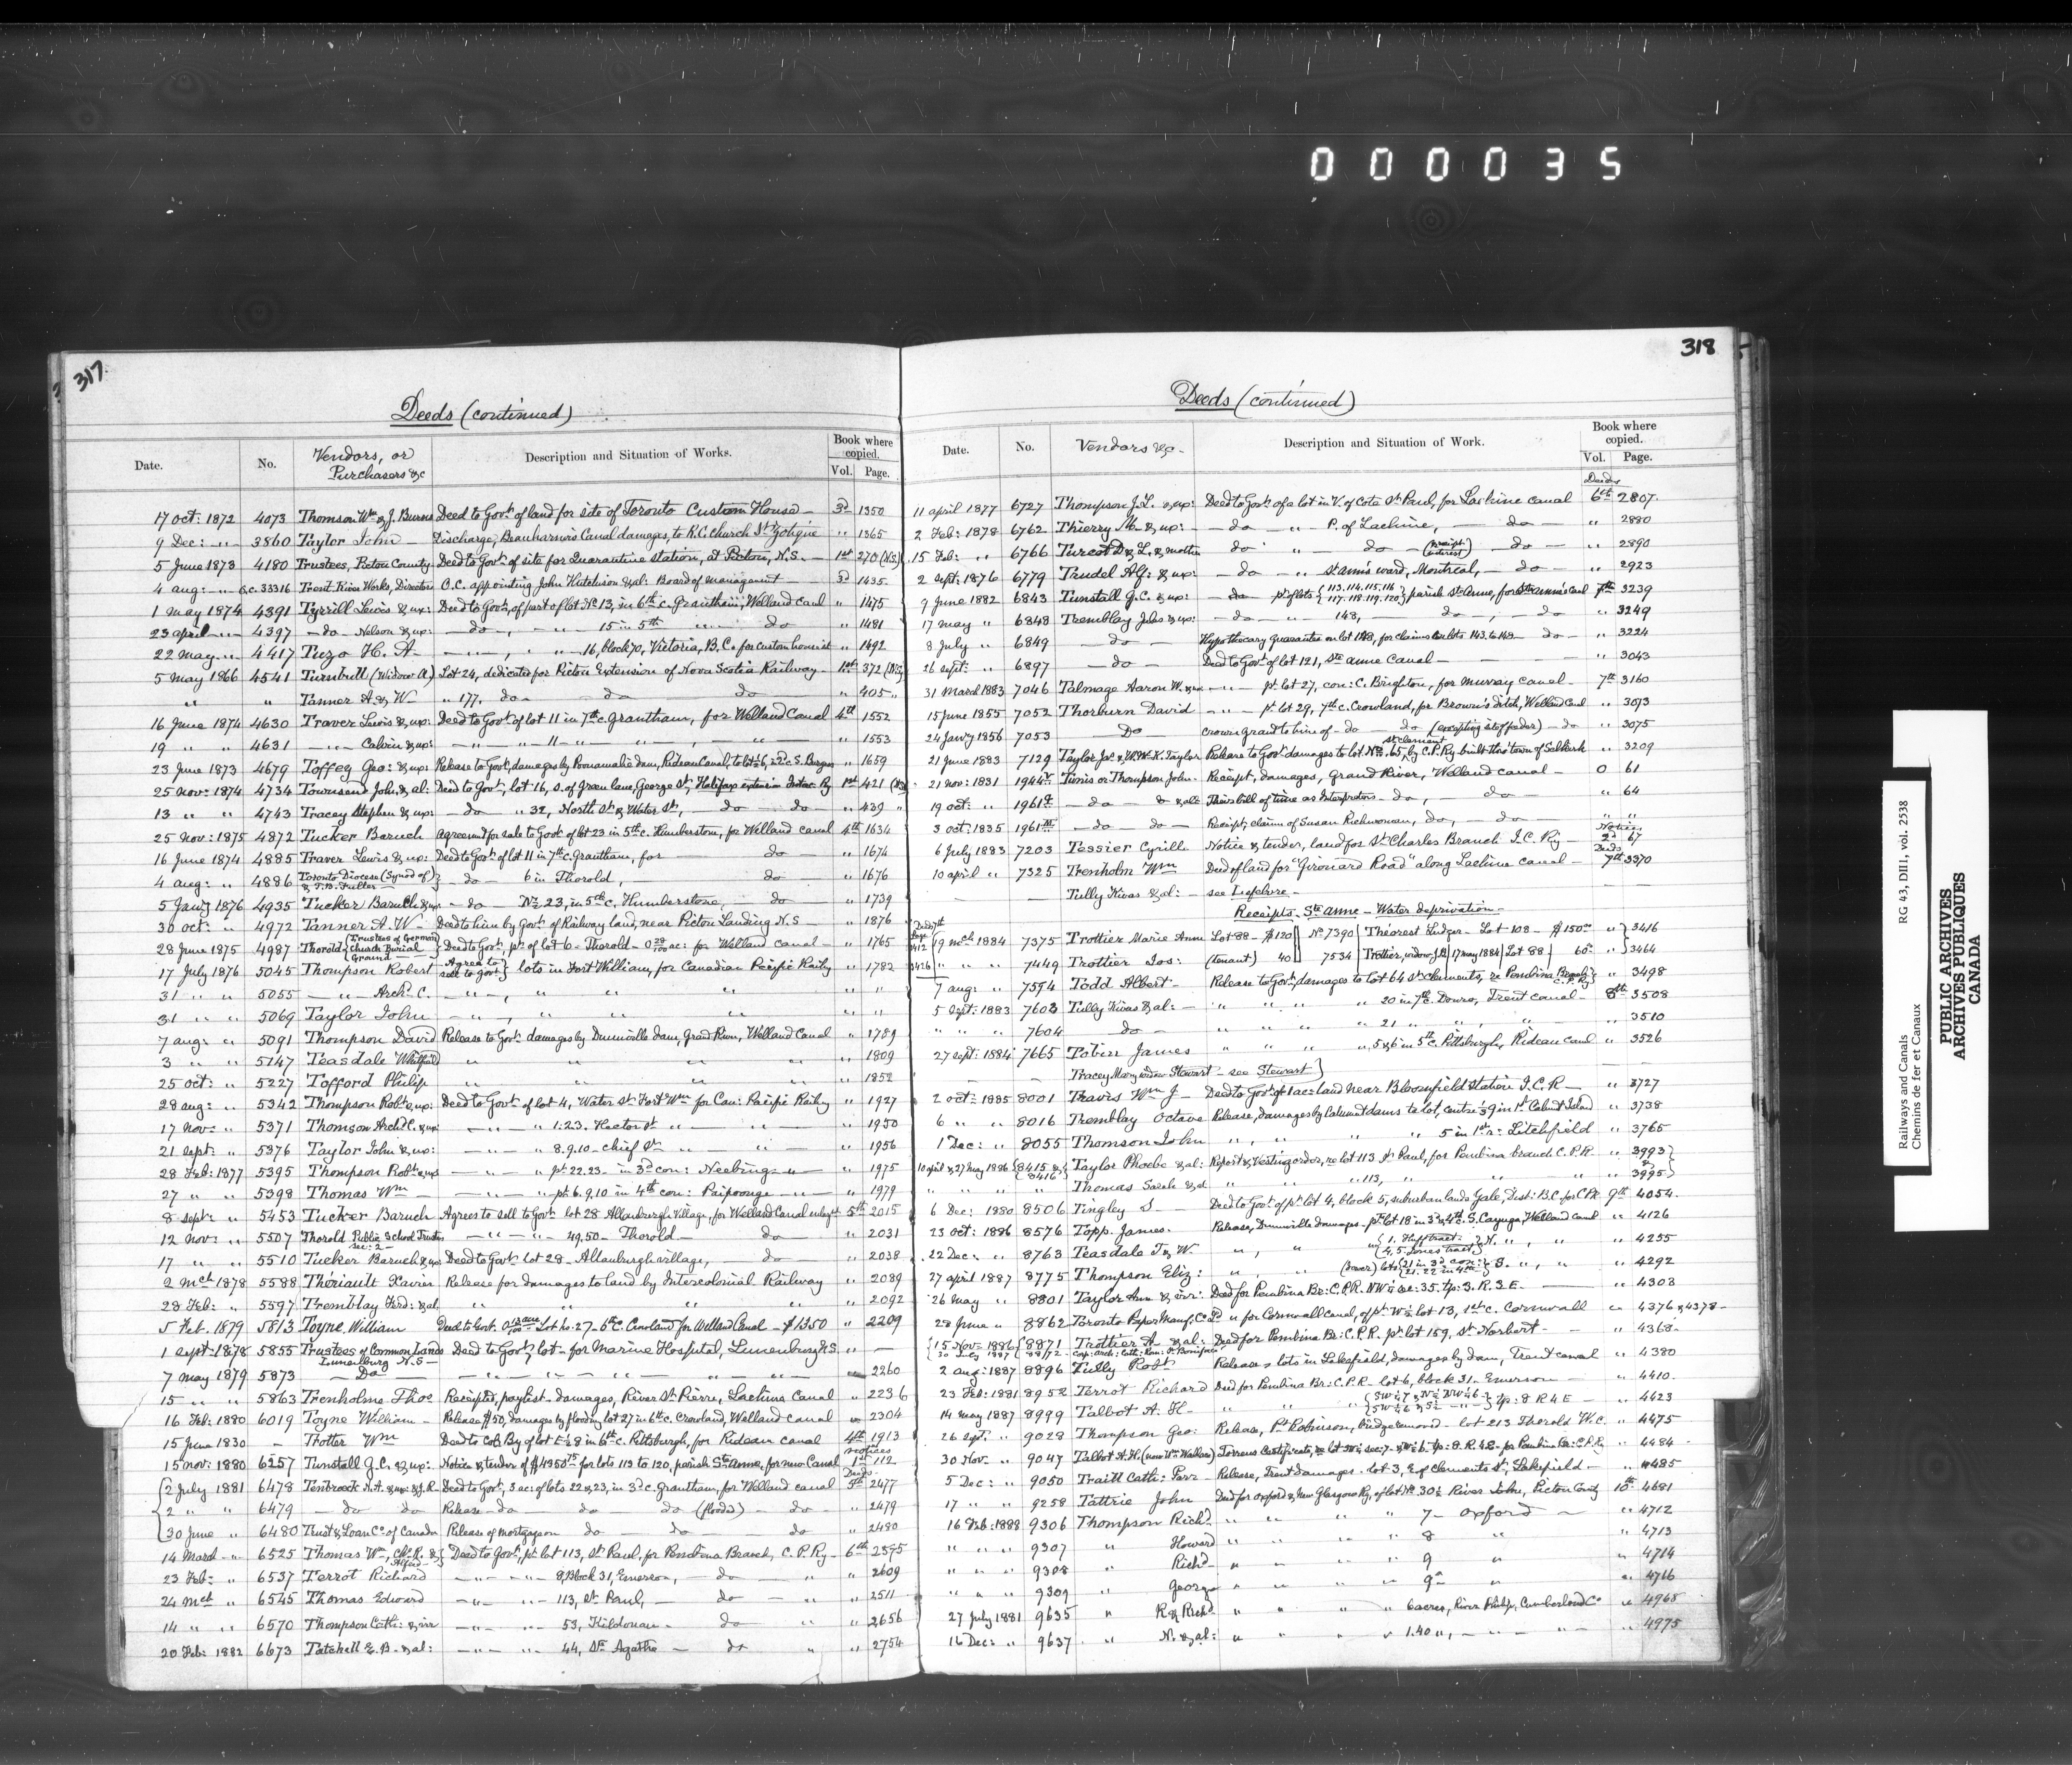 000035
317.
Deeds (continued)
Date. No. Vendors, or Purchasers &c Description and Situation of Works. Book where copied. Vol. Page.
17 Oct: 1872 4073 Thomson Wm & J. Burns Deed to Govt. of land for site of Toronto Custom House — 3d 1350
9 Dec: „ 3860 Taylor John — Discharge, Beauharnois Canal damages, to R.C. Church St. Zotique „ 1365
5 June 1873 4180 Trustees, Picton County Deed to Govt. of site for Quarantine station, at Pictou, N.S. — 1st 270 (N.S.)
4 aug: „ O.C. 33316 Trent River Works, Directors O.C. appointing John Hutchison & al: Board of management — 3d 1435
1 May 1874 4391 Tyrrill Lewis & up: Deed to Govt. of part of lot No 13, in 6th c. Grantham, Welland canl „ 1475
23 april „ 4397 — do — Nelson & up: — do —, „ — 15 in 5th „ — do „ 1481
22 May „ 4417 Tuzo H. A — „ —, „ — 16, block 70, Victoria, B.C. for custom house „ 1492
5 May 1866 4541 Turnbull (Widow A) Lot 24, dedicated for Pictou Extension of Nova Scotia Railway — 1st 372
„ „ Tanner A. & W — „ 177, do — do do — „ 405 „
16 June 1874 4630 Traver Lewis & up: Deed to Govt. of lot 11 in 7th c. Grantham, for Welland Canal 4th 1552
19 „ „ 4631 — „ — Calvin & up: — „ — „ — 11 — „ — „ — „ 1553
23 June 1873 4679 Toffey Geo: & up: Release to Govt, damages by Dam, Rideau Canal, to lot 6, 2d c. S. Burgess „ 1659
25 Nov: 1874 4734 Townsend John, & al: Deed to Govt, lot 16, S. of Green lane, George St, Halifax extension Inter: Ry 1st 421
13 „ „ 4743 Tracey Stephen & up: — do „ 32, North St. & Water St, — do — do — „ 439 „
25 Nov: 1875 4872 Tucker Baruch Agreemt for sale to Govt of lot 23 in 5th c. Humberstone, for Welland canal 4th 1634
16 June 1874 4885 Traver Lewis & up: Deed to Govt. of lot 11 in 7th c. Grantham, for — do — „ 1674
4 aug: „ 4886 Toronto Diocese (Synod of) & T.B. Fuller — do — 6 in Thorold, do — „ 1676
5 Jany 1876 4935 Tucker Baruch & up — do — No 23, in 5th c. Humberstone, — do „ 1739
30 oct: „ 4972 Tanner A. W — Deed to him by Govt. of Railway land, near Pictou Landing N.S — „ 1876
28 June 1875 4987 Thorold (Trustees of German Church Burial Ground) Deed to Govt. pt. of lot 6 — Thorold — ac: for Welland canal — „ 1765
17 July 1876 5045 Thompson Robert Agree to sell to govt lots in Fort William, for Canadian Pacific Railwy „ 1782
31 „ „ 5055 — „ — Archd. C. — „ —, „ „ „ „ „
31 „ „ 5069 Taylor John — „ —, „ „ „ „ „
7 aug: „ 5091 Thompson David Release to Govt damages by Dunnville Dam, Grand River, Welland Canal „ 1789
3 „ „ 5147 Teasdale Whitfield „ „ „ „ „ 1809
25 oct: „ 5227 Tofford Philip „ „ „ „ „ 1852
28 aug: „ 5342 Thompson Robt. & up: Deed to Govt. of lot 4, Water St. Fort Wm for Can: Pacific Railwy „ 1927
17 Nov: „ 5371 Thomson Archd. C. & up — „ — „ 1.23. Hector St „ — „ „ 1950
21 Sept: „ 5376 Taylor John & up: — „ — „ 8.9.10 — chief St „ — „ „ 1956
28 Feb: 1877 5395 Thompson Robt. & up — „ — „ pt. 22.23 — in 3d con: Neebing — „ — „ 1975
27 „ „ 5398 Thomas Wm — — „ — „ pt. 6.9.10 in 4th con: Paipoonge — „ — „ 1979
8 Sept: „ 5453 Tucker Baruch Agrees to sell to Govt lot 28 Allanburgh Village, for Welland Canal enlargt 5th 2015
12 Nov: „ 5507 Thorold Public School Trustees Sec: 2 — — „ — „ — 49,50 — Thorold — do — „ 2031
17 „ „ 5510 Tucker Baruch & up Deed to Govt. lot 28 — Allanburgh village, — do — „ 2038
2 Mch 1878 5588 Thériault Xavier Release for damages to land by Intercolonial Railway „ 2089
28 Feb: „ 5597 Tremblay Ferd: & al „ „ „ „ „ 2092
5 Feb. 1879 5813 Toyne William Deed to Govt. Lot No. 27 — 6th C. Crowland for Welland Canal — $1350 „ 2209
1 Sept: 1878 5855 Trustees of Common Lands Lunenburg N.S — Deed to Govt. lot — for Marine Hospital, Lunenburg N.S. „ —
7 May 1879 5873 — Do — „ — „ — „ — „ — „ 2260
15 „ „ 5863 Trenholme Thos Receipted, paylist — damages, River St. Pierre, Lachine Canal „ 2236
16 Feb: 1880 6019 Toyne William — Release $50, damages by flooding lot 27 in 6th c. Crowland, Welland canal „ 2304
15 June 1830 — Trotter Wm Deed to Col. By of lot E½ 8 in 6th c. Pittsburgh, for Rideau canal 4th 1913
15 Nov: 1880 6257 Tunstall G.C. & up: Notice & tender of $4950 for lots 113 to 120, parish Ste Anne, for new Canal Notices 1st 112
2 July 1881 6478 Tenbroeck N.A. & up: & J.R — Deed to Govt, 3 ac: of lots 22 & 23, in 3d c. Grantham, for Welland canal Deeds 5th 2477
2 „ „ 6479 — do do Release — do do do (floods) — do — „ 2479
30 June „ 6480 Trust & Loan Co of Canada Release of mortgage on do — do — do „ 2480
14 March „ 6525 Thomas Wm, Ch. R. & Alfred Deed to Govt, pt. lot 113, St. Paul, for Pembina Branch, C.P. Ry — 6th 2595
23 Feb: „ 6537 Terrot Richard — „ — „ — 8, Block 31, Emerson, — do — „ „ 2609
24 Mch „ 6545 Thomas Edward — „ — „ — 113, St. Paul, — do — „ „ 2511
14 „ „ 6570 Thompson Cath: & vir — „ — „ — 53, Kildonan — do „ „ 2656
20 Feb: 1882 6673 Tatchell E.B. & al: — „ — „ — 44, Ste Agathe — do „ „ 2754
318
Deeds (continued)
Date. No. Vendors &c — Description and Situation of Work. Book where copied. Vol. Page.
11 april 1877 6727 Thompson J. L. & up: Deed to Govt. of a lot in V. of Cote St. Paul, for Lachine canal Deeds 6th 2807
2 Feb: 1878 6762 Thierry M. & up: — do — „ — P. of Lachine, — do — „ 2880
15 Feb: „ 6766 Turcot D. & L. & mother do „ — do — (receipt interest) — do — „ 2890
2 Sept: 1876 6779 Trudel Alf: & up: — do — „ St. Ann's ward, Montreal, — do — „ 2923
9 June 1882 6843 Tunstall G.C. & up: — do — pt. of lots 113.114.115.116 117.118.119.120 parish St. Anne, for Ste Anne's Canl 7th 3239
17 May „ 6848 Tremblay Jos & up: — do — „ — 148, — do —, — do „ 3249
8 July „ 6849 — do — Hypothecary guarantee on lot 148, for claims on lots 143 to 148 — do — „ 3224
26 Sept: „ 6897 — do — Deed to Govt of lot 121, Ste Anne Canal — „ 3043
31 March 1883 7046 Talmage Aaron W. & ux — „ — pt. lot 27, con: C. Brighton, for Murray canal — 7th 3160
15 June 1855 7052 Thorburn David — „ — pt. lot 29, 7th c. Crowland, for Brown's ditch, Welland Canl „ 3073
24 Jany 1856 7053 Do — crown grant to him of — do do (excepting strip fenced) — do „ 3075
21 June 1883 7129 Taylor Jos. & W.W.K. Taylor Release to Govt damages to lot No. 65, St Clement by C.P. Ry built thro' town of Selkirk „ 3209
21 Nov: 1831 1944 Timis or Thompson John — Receipt, damages, Grand River, Welland canal — O 61
19 oct: „ 1961 — do — & al: Theirs bill of time as Interpreters — do, — do — „ 64
3 oct: 1835 1961 — do do — Receipt, claim of Susan Richwoman, do, — do — „ „
6 July 1883 7203 Tessier Cyrille Notice & tender, land for St. Charles Branch I.C. Ry — Notices 2d 67
10 april „ 7325 Trenholm Wm Deed of land for "Girouard Road" along Lachine canal — Deeds 7th 3370
— — Tully Kivas & al: — see Lefebvre — — —
Receipts — Ste Anne — Water deprivation —
Deeds 7th page 3412 19 Mch 1884 7375 Trottier Marie Anne Lot 88 — $120 No 7390 Théorest Ludger — Lot 108 — $150 „ 3416
3426 „ „ „ 7449 Trottier Jos: (tenant) 40 7534 Trottier, widow J.B. 17 May 1884 Lot 88 60 „ 3464
7 aug: „ 7554 Todd Albert — Release to Govt, damages to lot 64 St. Clements, re Pembina Branch C.P. Ry „ 3498
5 Sept: 1883 7603 Tully Kivas & al: — „ „ „ „ 20 in 7th c. Douro, Trent canal — 8th 3508
„ „ „ 7604 — do — „ „ „ „ 21 „ „ „ „ — „ 3510
27 Sept: 1884 7665 Tobin James „ „ „ „ 5 & 6 in 5th c. Pittsburgh, Rideau canl „ 3526
— — Tracey Mary widow Stewart — see Stewart — —
2 oct: 1885 8001 Travis Wm J — Deed to Govt of 1 ac: land near Bloomfield Station I.C.R — „ 3727
6 „ „ 8016 Tremblay Octave Release, damages by Calumet dams to lot, centre ⅓ 9 in 1st Calumet Island „ 3738
1 Dec: „ 8055 Thomson John „ „ „ „ 5 in 1st r: Litchfield „ 3765
10 april & 27 May 1886 8415 & 8416 Taylor Phoebe & al: Report & Vesting order, re lot 113 St. Paul, for Pembina branch C.P.R „ 3993
„ „ „ „ Thomas Sarah & al „ „ „ 113, „ „ „ & 3995
6 Dec: 1880 8506 Tingley S — Deed to Govt of pt. lot 4, block 5, suburban lands Yale, Dist: B.C. for C.P.R. 9th 4054
23 oct: 1886 8576 Topp James. Release, Dunnville damages — pt. lot 18 in 3d & 4th c. S. Cayuga, Welland canl „ 4126
22 Dec: „ 8763 Teasdale T. & W. „ , „ 1. Huff tract: 4, 5. Jones tract N. „ , „ „ 4255
27 april 1887 8775 Thompson Eliz: „ , „ lots 21 in 3d con: 21. 22 in 4th S. „ , „ „ 4292
26 May „ 8801 Taylor Ann & vir: Deed for Pembina Br: C.P.R. NW¼ sec: 35. tp: 3. R. 3 E. — „ 4303
28 June „ 8862 Toronto Paper Manuf. Co Ld „ for Cornwall canal, of pt. W½ lot 13, 1st c. Cornwall „ 4376 & 4378 —
15 Nov: 1886 8871 Trottier A. & al: Deed for Pembina Br: C.P.R. pt. lot 159, St. Norbert — „ 4368
30 July 1887 8872 Corp: Arch: Cath: Rom: St Boniface
2 aug: 1887 8896 Tully Robt Release, lots in Lakefield, damages by dam, Trent canal „ 4380
23 Feb: 1881 8952 Terrot Richard Deed for Pembina Br: C.P.R — lot 6, block 31 — Emerson — „ 4410
14 May 1887 8999 Talbot A. H — „ „ „ tp: 8 R 4 E — „ 4423
26 Sept: „ 9028 Thompson Geo: Release, Pt. Robinson, bridge removal — lot 213 Thorold W.C. „ 4475
30 Nov. „ 9047 Talbot A.H. (now Wm Wallace) Torrens Certificate, for Pembina Br: C.P.R. „ 4484
5 Dec: „ 9050 Traill Cath: Parr — Release, Trent damages — lot 3, E. of Clements St, Lakefield — „ 4485
17 „ „ 9258 Tattrie John Deed for Oxford & New Glasgow Ry, of lot No 30½ River John, Pictou County 10th 4681
16 Feb: 1888 9306 Thompson Richd. „ „ „ „ 7 — Oxford — „ 4712
„ „ „ 9307 „ Howard „ „ „ „ 8 „ „ 4713
„ „ „ 9308 „ Richd. „ „ „ „ 9 „ „ 4714
„ „ „ 9309 „ George „ „ „ „ 9a „ „ 4716
27 July 1881 9635 „ R. & Richd. „ „ „ „ 6 acres, River Philip, Cumberland Co „ 4965
16 Dec: „ 9637 „ N. & al: „ „ „ „ 1.40 „, — „ — „ — „ 4975
Railways and Canals RG 43, DIII, vol. 2538
Chemins de fer et Canaux
PUBLIC ARCHIVES
ARCHIVES PUBLIQUES
CANADA